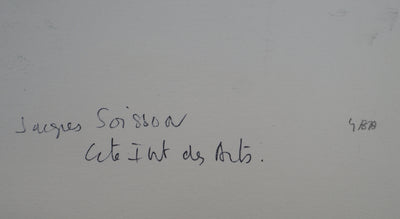 Jacques Soisson
Cite Int des Arts.